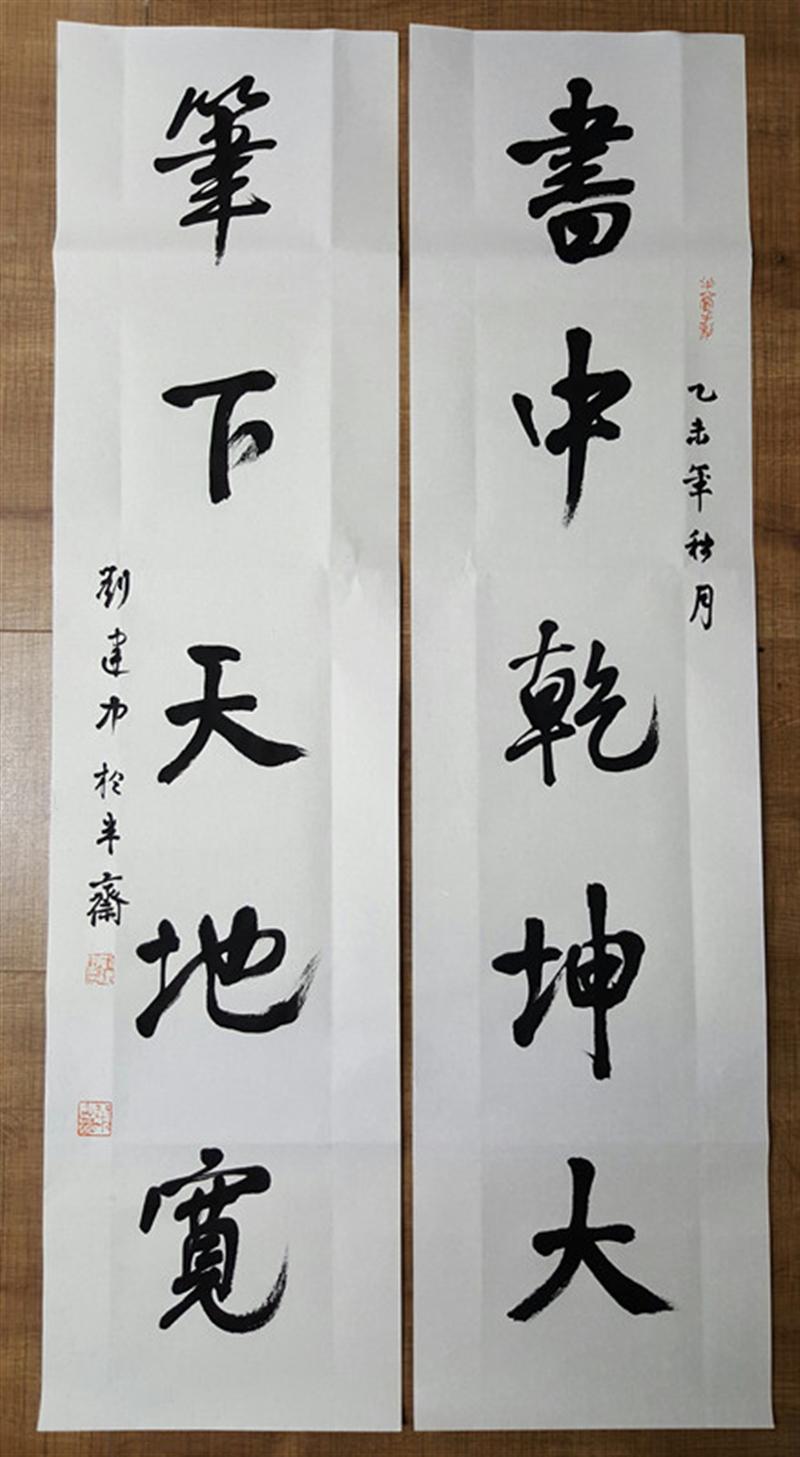 書中乾坤大
乙未年秋月
筆下天地寬
劉建
於半齋